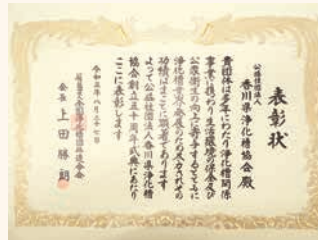 表彰状
公益社団法人
香川県浄化槽協会殿
貴団体は多年にわたり浄化槽関係
事業に携わり生活環境の保全及び
公衆衛生の向上に寄与するとともに
浄化槽業界の発展のため尽力された
功績はまことに顕著であります
よって公益社団法人香川県浄化槽
協会創立五十周年式典にあたり
ここに表彰します
令和五年八月二十七日
一般社団法人全国浄化槽団体連合会
会長 上田勝朗